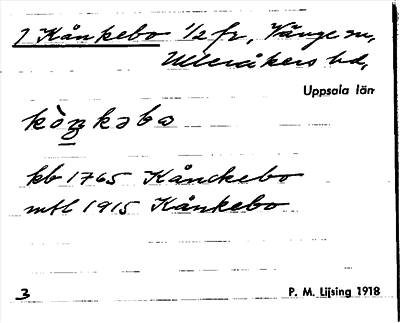 7 Kånkebo 1/2 fr, Vänge sn,
Ulleråkers hd,
Uppsala län
kòŋkəbə
kb 1765 Kånckebo
mtl 1915 Kånkebo
3 P. M. Lijsing 1918